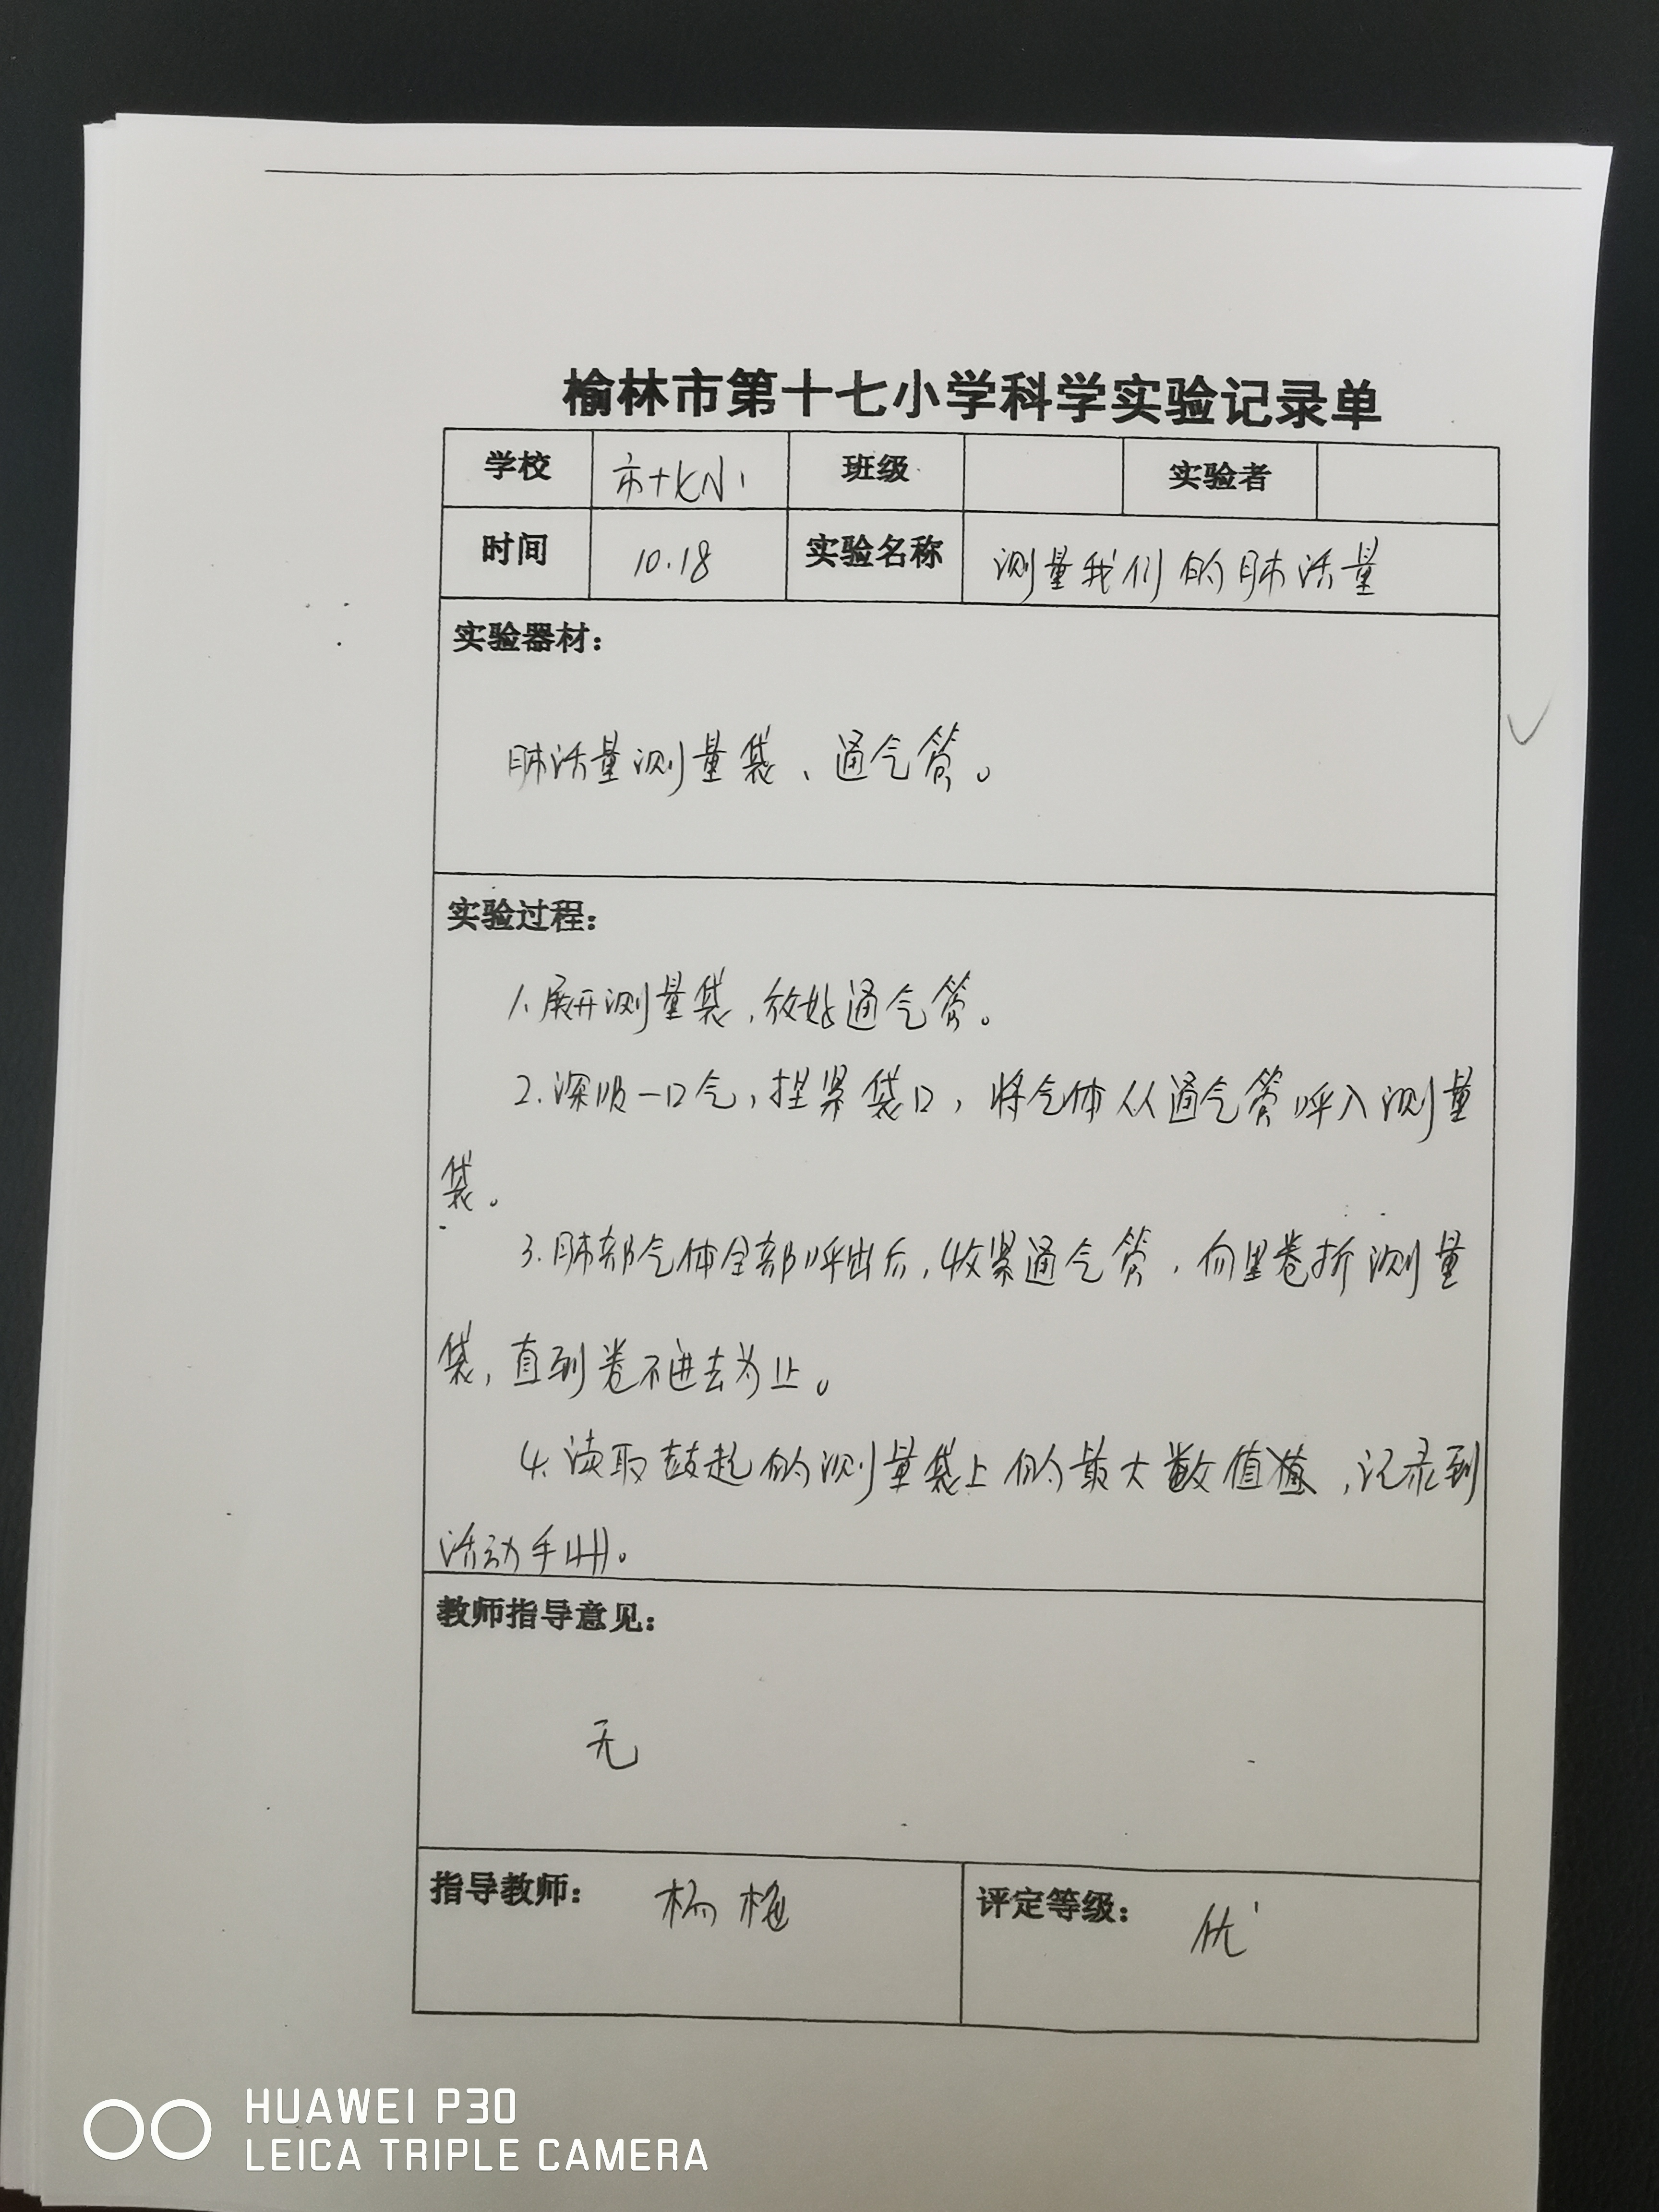 榆林市第十七小学科学实验记录单
学校 市十七小 班级 实验者
时间 10.18 实验名称 测量我们的肺活量
实验器材：
肺活量测量袋、通气管。
实验过程：
1.展开测量袋，放好通气管。
2.深吸一口气，捏紧袋口，将气体从通气管呼入测量
袋。
3.肺部气体全部呼出后，收紧通气管，向里卷折测量
袋，直到卷不进去为止。
4.读取鼓起的测量袋上的最大数值，记录到
活动手册。
教师指导意见：
无
指导教师： 杨艳 评定等级： 优
HUAWEI P30
LEICA TRIPLE CAMERA